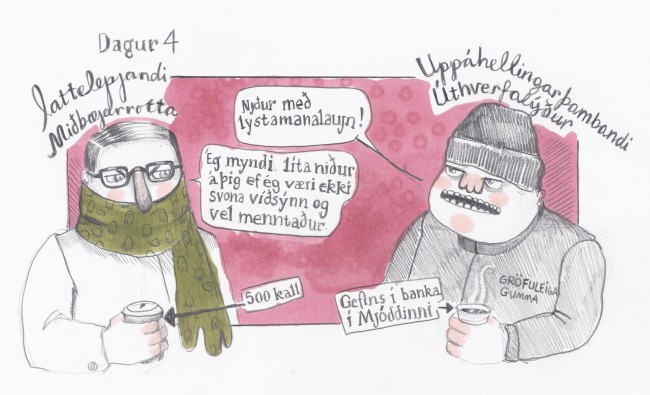 Dagur 4
Lattelepjandi
Miðbæjarrotta
Uppáhellingarþambandi
Úthverfalýður
Nyður með
lystamanalaun!
Ég myndi líta niður
á þig ef ég væri ekki
svona víðsýnn og
vel menntaður.
500 kall
Gefins í banka
í Mjóddinni
GRÖFULEIGA
GUMMA